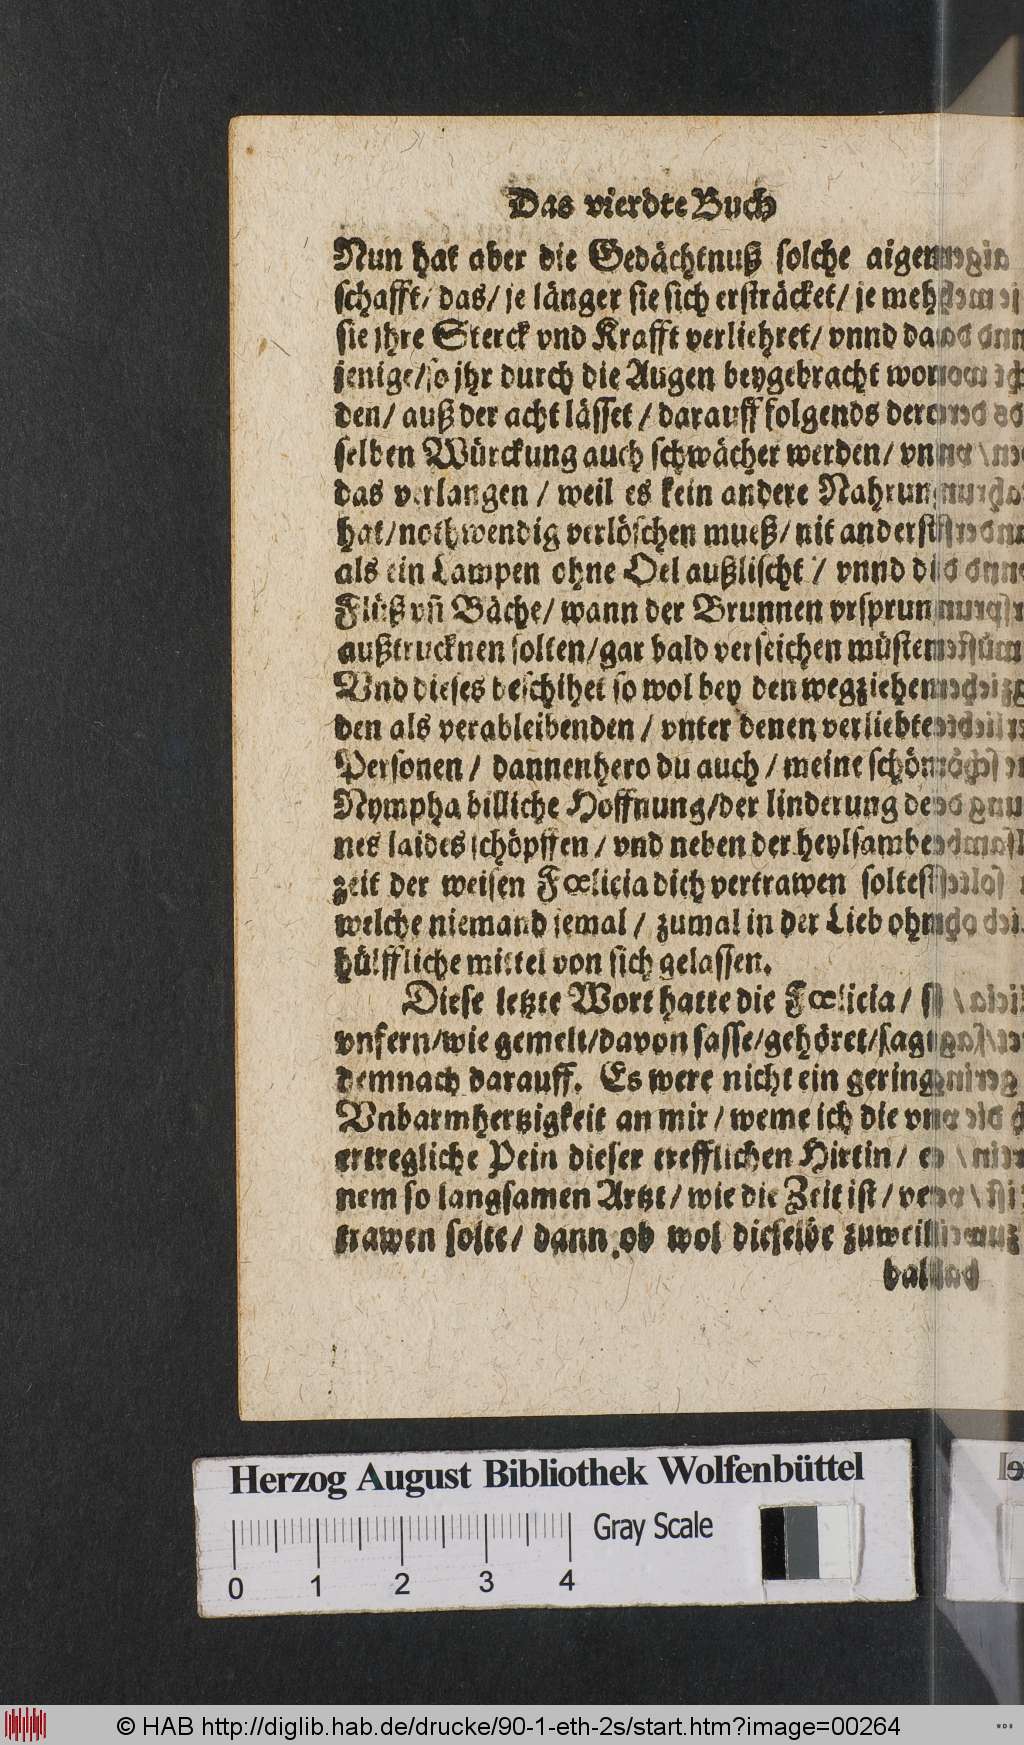 Das vierdte Buch
Nun hat aber die Gedächtnuß solche aigen
schafft/ das/ je länger sie sich ersträcket/ je meh
sie jhre Sterck vnd Krafft verliehret/ vnnd da
jenige/ so jhr durch die Augen beygebracht wor
den/ auß der acht lässet/ darauff folgends der
selben Würckung auch schwächer werden/ vn
das verlangen/ weil es kein andere Nahrung
hat/ nothwendig verlöschen mueß/ nit anderst
als ein Lampen ohne Oel außlischt/ vnnd di
Flüß vñ Bäche/ wann der Brunnen vrsprun
außtrucknen solten/ gar bald verseichen müsten
Vnd dieses beschihet so wol bey den wegziehen
den als verableibenden/ vnter denen verliebte
Personen/ dannenhero du auch/ meine schön
Nympha billiche Hoffnung/ der linderung de
nes laides schöpffen/ vnd neben der heylsambe
zeit der weisen Fœlicia dich vertrawen soltest
welche niemand jemal/ zumal in der Lieb ohn
hülffliche mittel von sich gelassen.
Diese letzte Wort hatte die Fœlicia/ s
vnfern/ wie gemelt/ davon sasse/ gehöret/ sag
demnach darauff. Es were nicht ein gering
Vnbarmhertzigkeit an mir/ weme ich die vn
ertregliche Pein dieser trefflichen Hirtin/ e
nem so langsamen Artzt/ wie die Zeit ist/ ve
trawen solte/ dann ob wol dieselbe zuweil
bal
Herzog August Bibliothek Wolfenbüttel
Gray Scale
0 1 2 3 4
© HAB http://diglib.hab.de/drucke/90-1-eth-2s/start.htm?image=00264